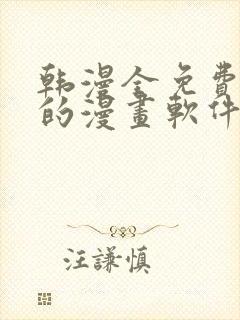 韩漫全免費
的漫畫軟件
汪謙慎